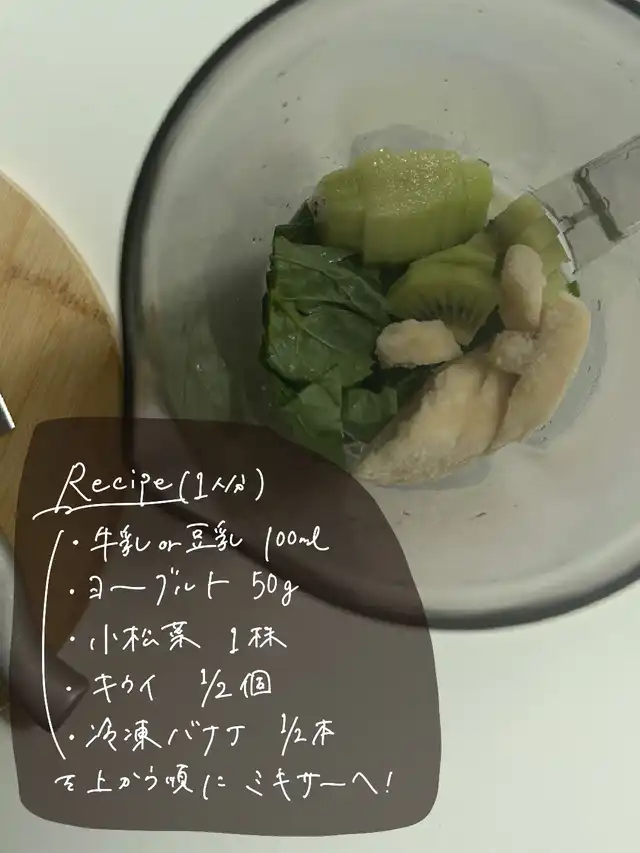 Recipe(1人分)
・牛乳or豆乳 100ml
・ヨーグルト 50g
・小松菜 1株
・キウイ 1/2個
・冷凍バナナ 1/2本
を上から順に ミキサーへ!